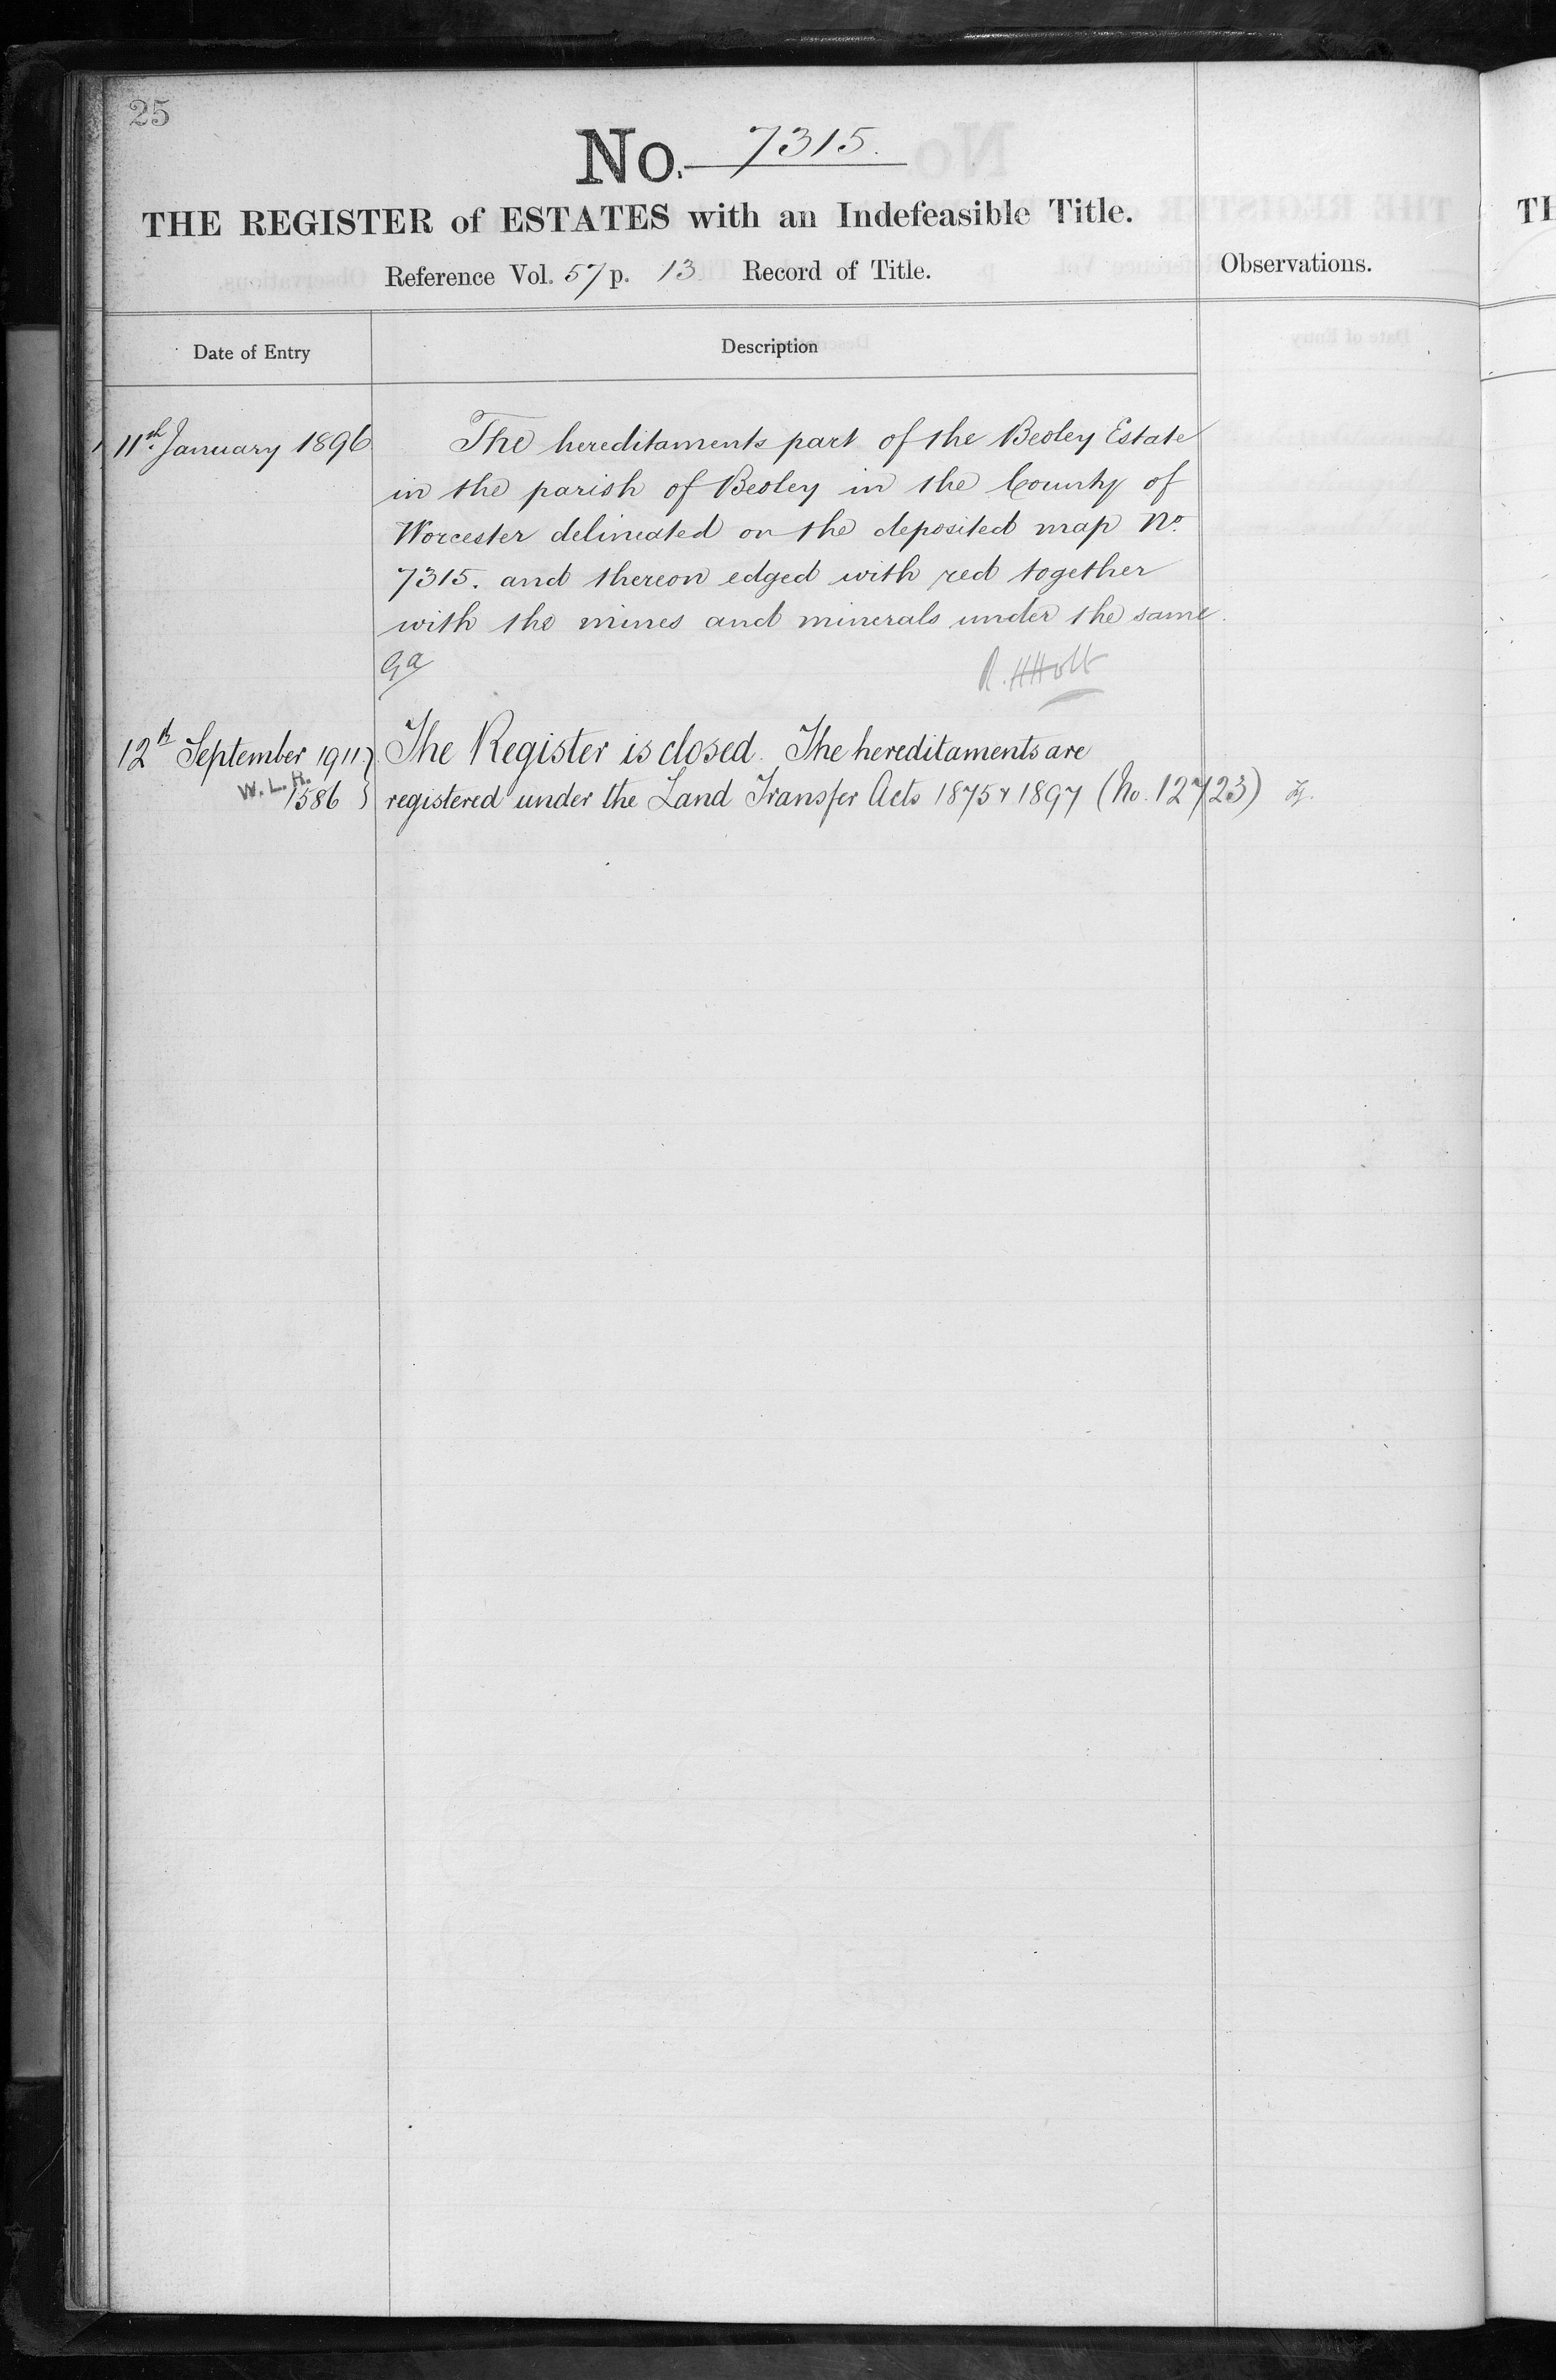 25
No. 7315.
THE REGISTER of ESTATES with an Indefeasible Title.
Reference Vol. 57 p. 13 Record of Title.
Observations.
Date of Entry
Description
11th January 1896
The hereditaments part of the Beoley Estate
in the parish of Beoley in the County of
Worcester delineated on the deposited map No
7315. and thereon edged with red together
with the mines and minerals under the same.
R. H Holt
12th September 1911 } The Register is closed. The hereditaments are
W. L. H.
1586 } registered under the Land Transfer Acts 1875 & 1897 (No. 12723)